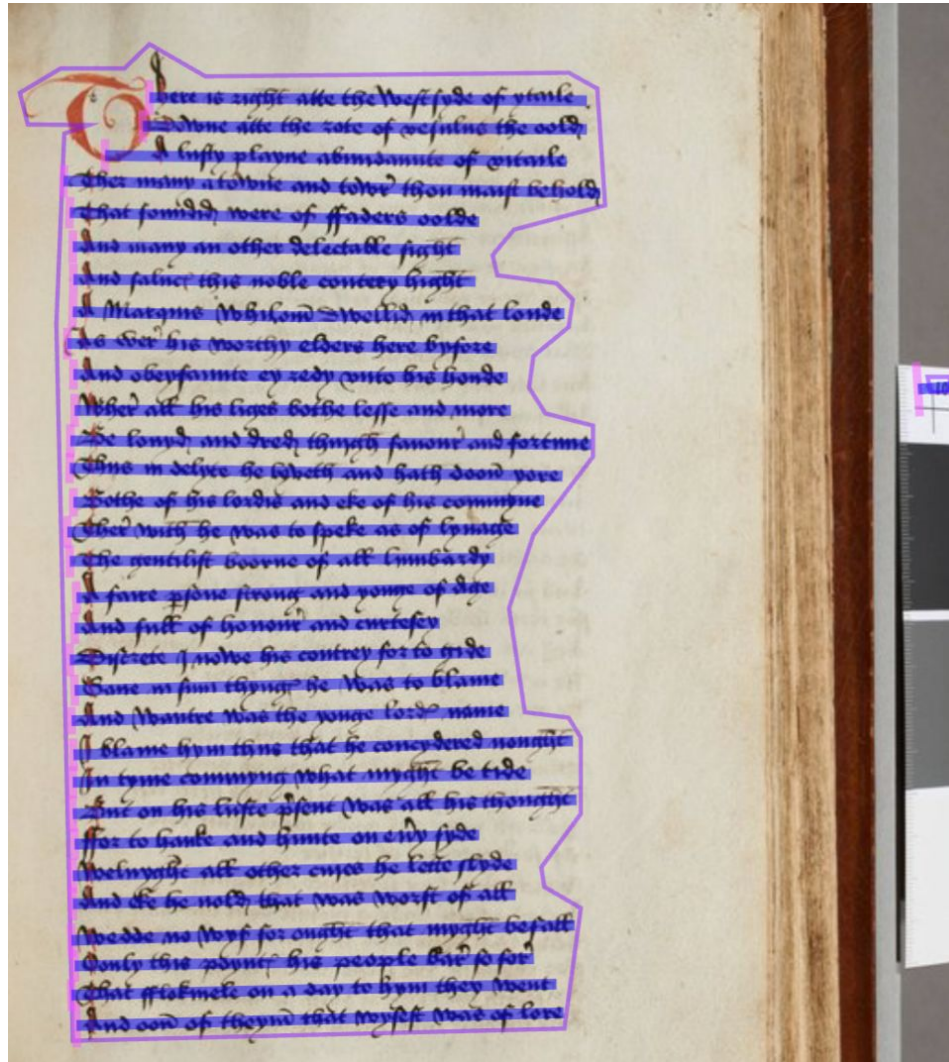 There is right atte the West syde of ytaile
Downe atte the rote of vesulus the oold
A lusty playne abundaunte of vitaile
Ther many a towne and towr thou maist behold
That foundid were of ffaders oolde
And many an other delectable sight
And saluce this noble contrey hight
A Marquis Whilom Dwellid in that londe
As Wer his worthy elders here byfore
And obeysaunte ey redy vnto his honde
Wher all his liges bothe lesse and more
Be louyd and dred thrugh fauour and fortune
Thus in delyte he lyveth and hath doon yore
Bothe of his lordis and eke of his commyne
Ther with he was to speke as of lynage
The gentilist boorne of all lumbardy
A faire psone strong and yonge of Age
And full of honour and curtesey
Discrete I nowe his contrey for to gide
Saue in sum thynge he Was to blame
And Wautre was the yonge lord name
I blame hym thus that he concydered nought
In tyme commyng what myght be tide
But on his luste psent Was all his thought
ffor to hauke and hunte on euy syde
Welnyght all other cures he lette slyde
And eke he nold that was worst of all
Wedde no Wyf for ought that myght befall
Oonly this poynt his people bar so sor
That fflokmele on a day to hym they Went
And oon of theym that Wysest Was of lore